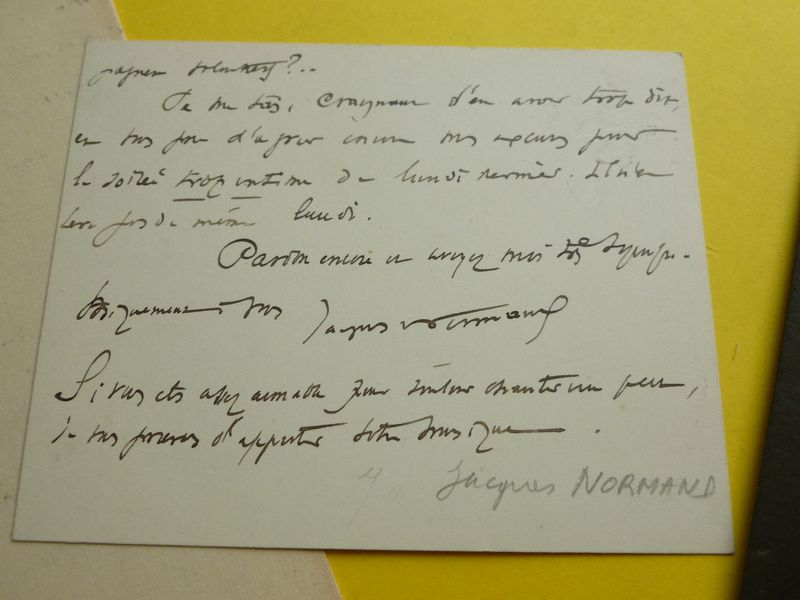 Je me tais, craignant d'en avoir trop dit,
en vous priant d'agréer encore mes excuses pour
la soirée trop intime de lundi dernier. Il n'en
sera pas de même lundi.
Pardon encore et croyez moi très sympa-
thiquement à vous Jacques Normand
Si vous êtes assez aimable pour vouloir chanter un peu,
je vous prierais d'apporter votre musique.
Jacques NORMAND